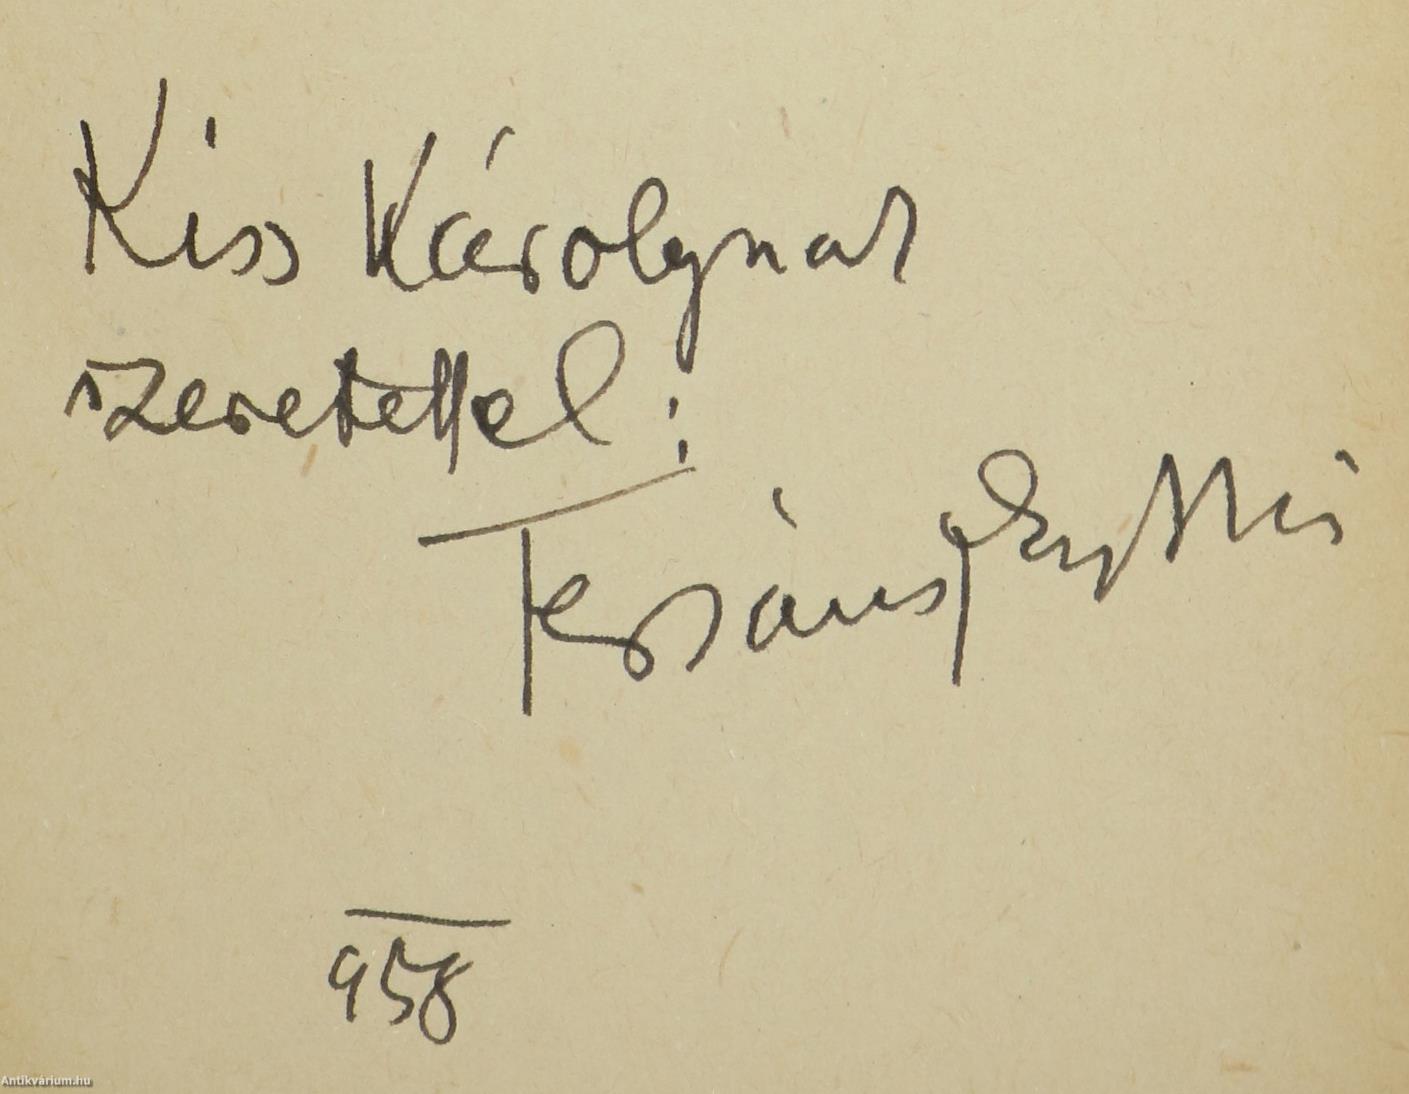 Kiss Károlynak
szeretettel:
Tersánszky
958
Antikvárium.hu